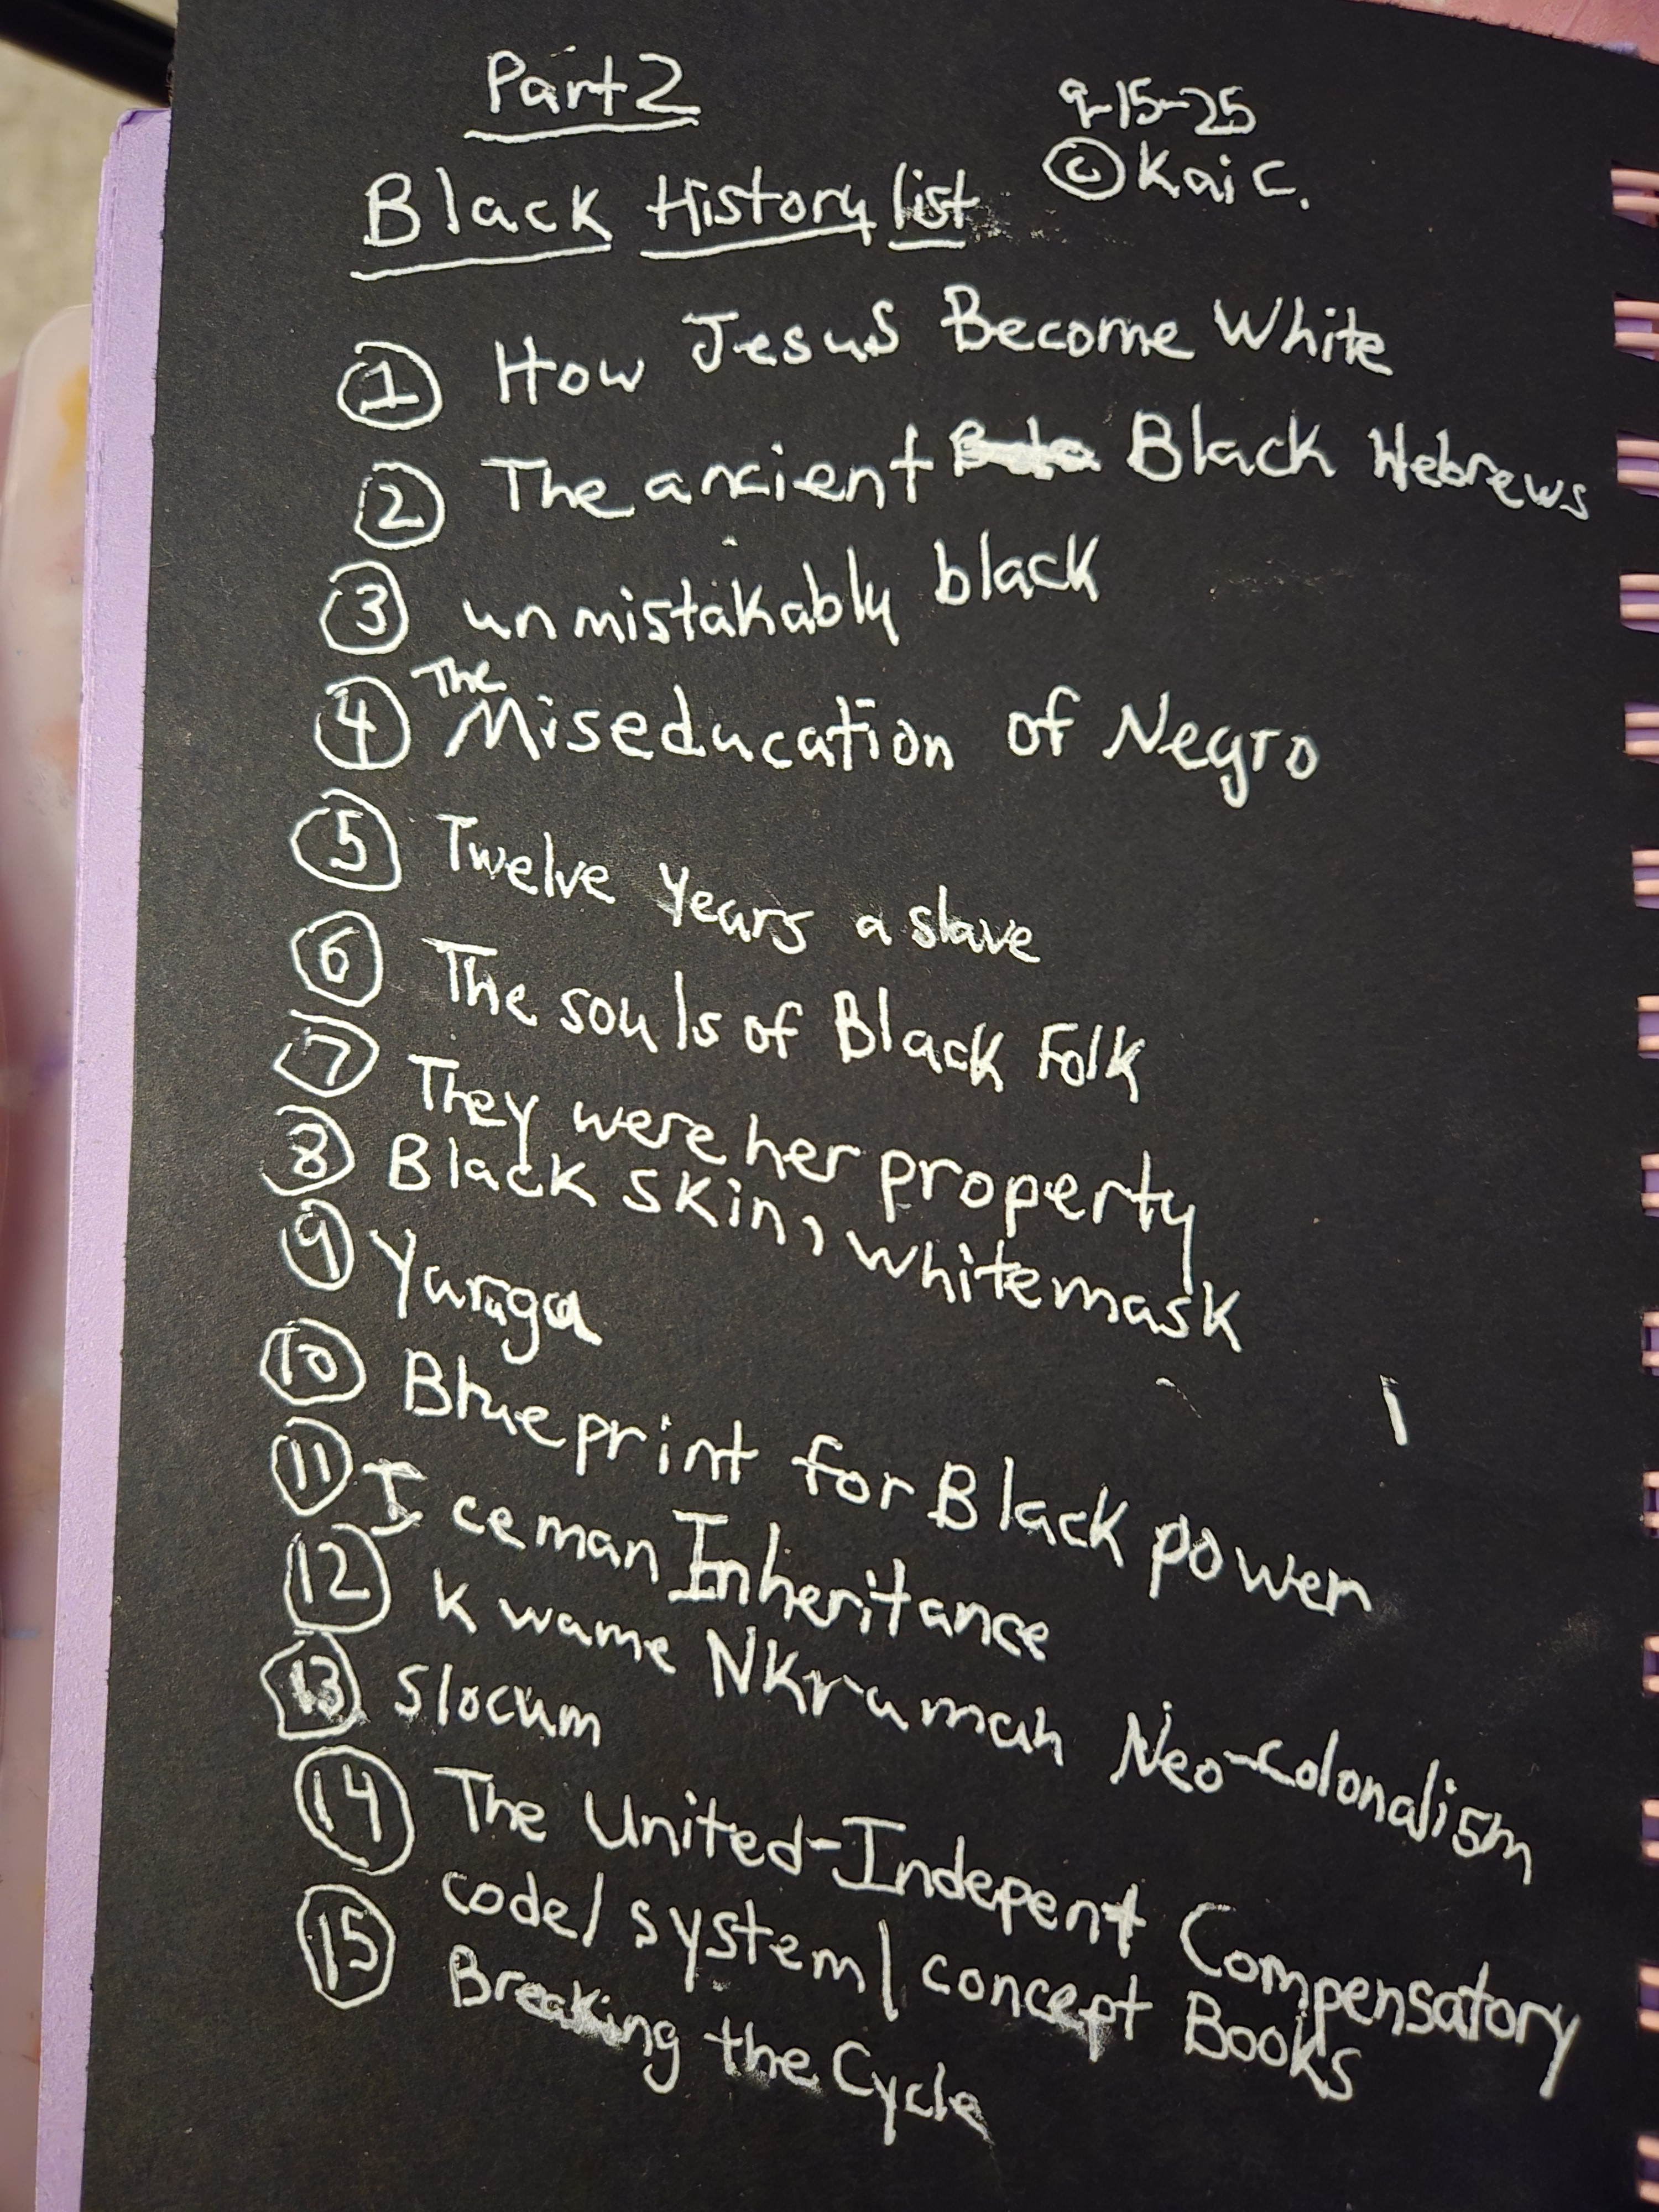 Part 2
9-15-25
© Kai C.
Black History list
① How Jesus Become White
② The ancient Black Hebrews
③ unmistakably black
④ The Miseducation of Negro
⑤ Twelve Years a slave
⑥ The souls of Black Folk
⑦ They were her property
⑧ Black skin, white mask
⑨ Yurugu
⑩ Blueprint for Black power
⑪ Iceman Inheritance
⑫ Kwame Nkrumah Neo-colonalism
⑬ Slocum
⑭ The United-Indepent Compensatory
code/system/concept Books
⑮ Breaking the Cycle